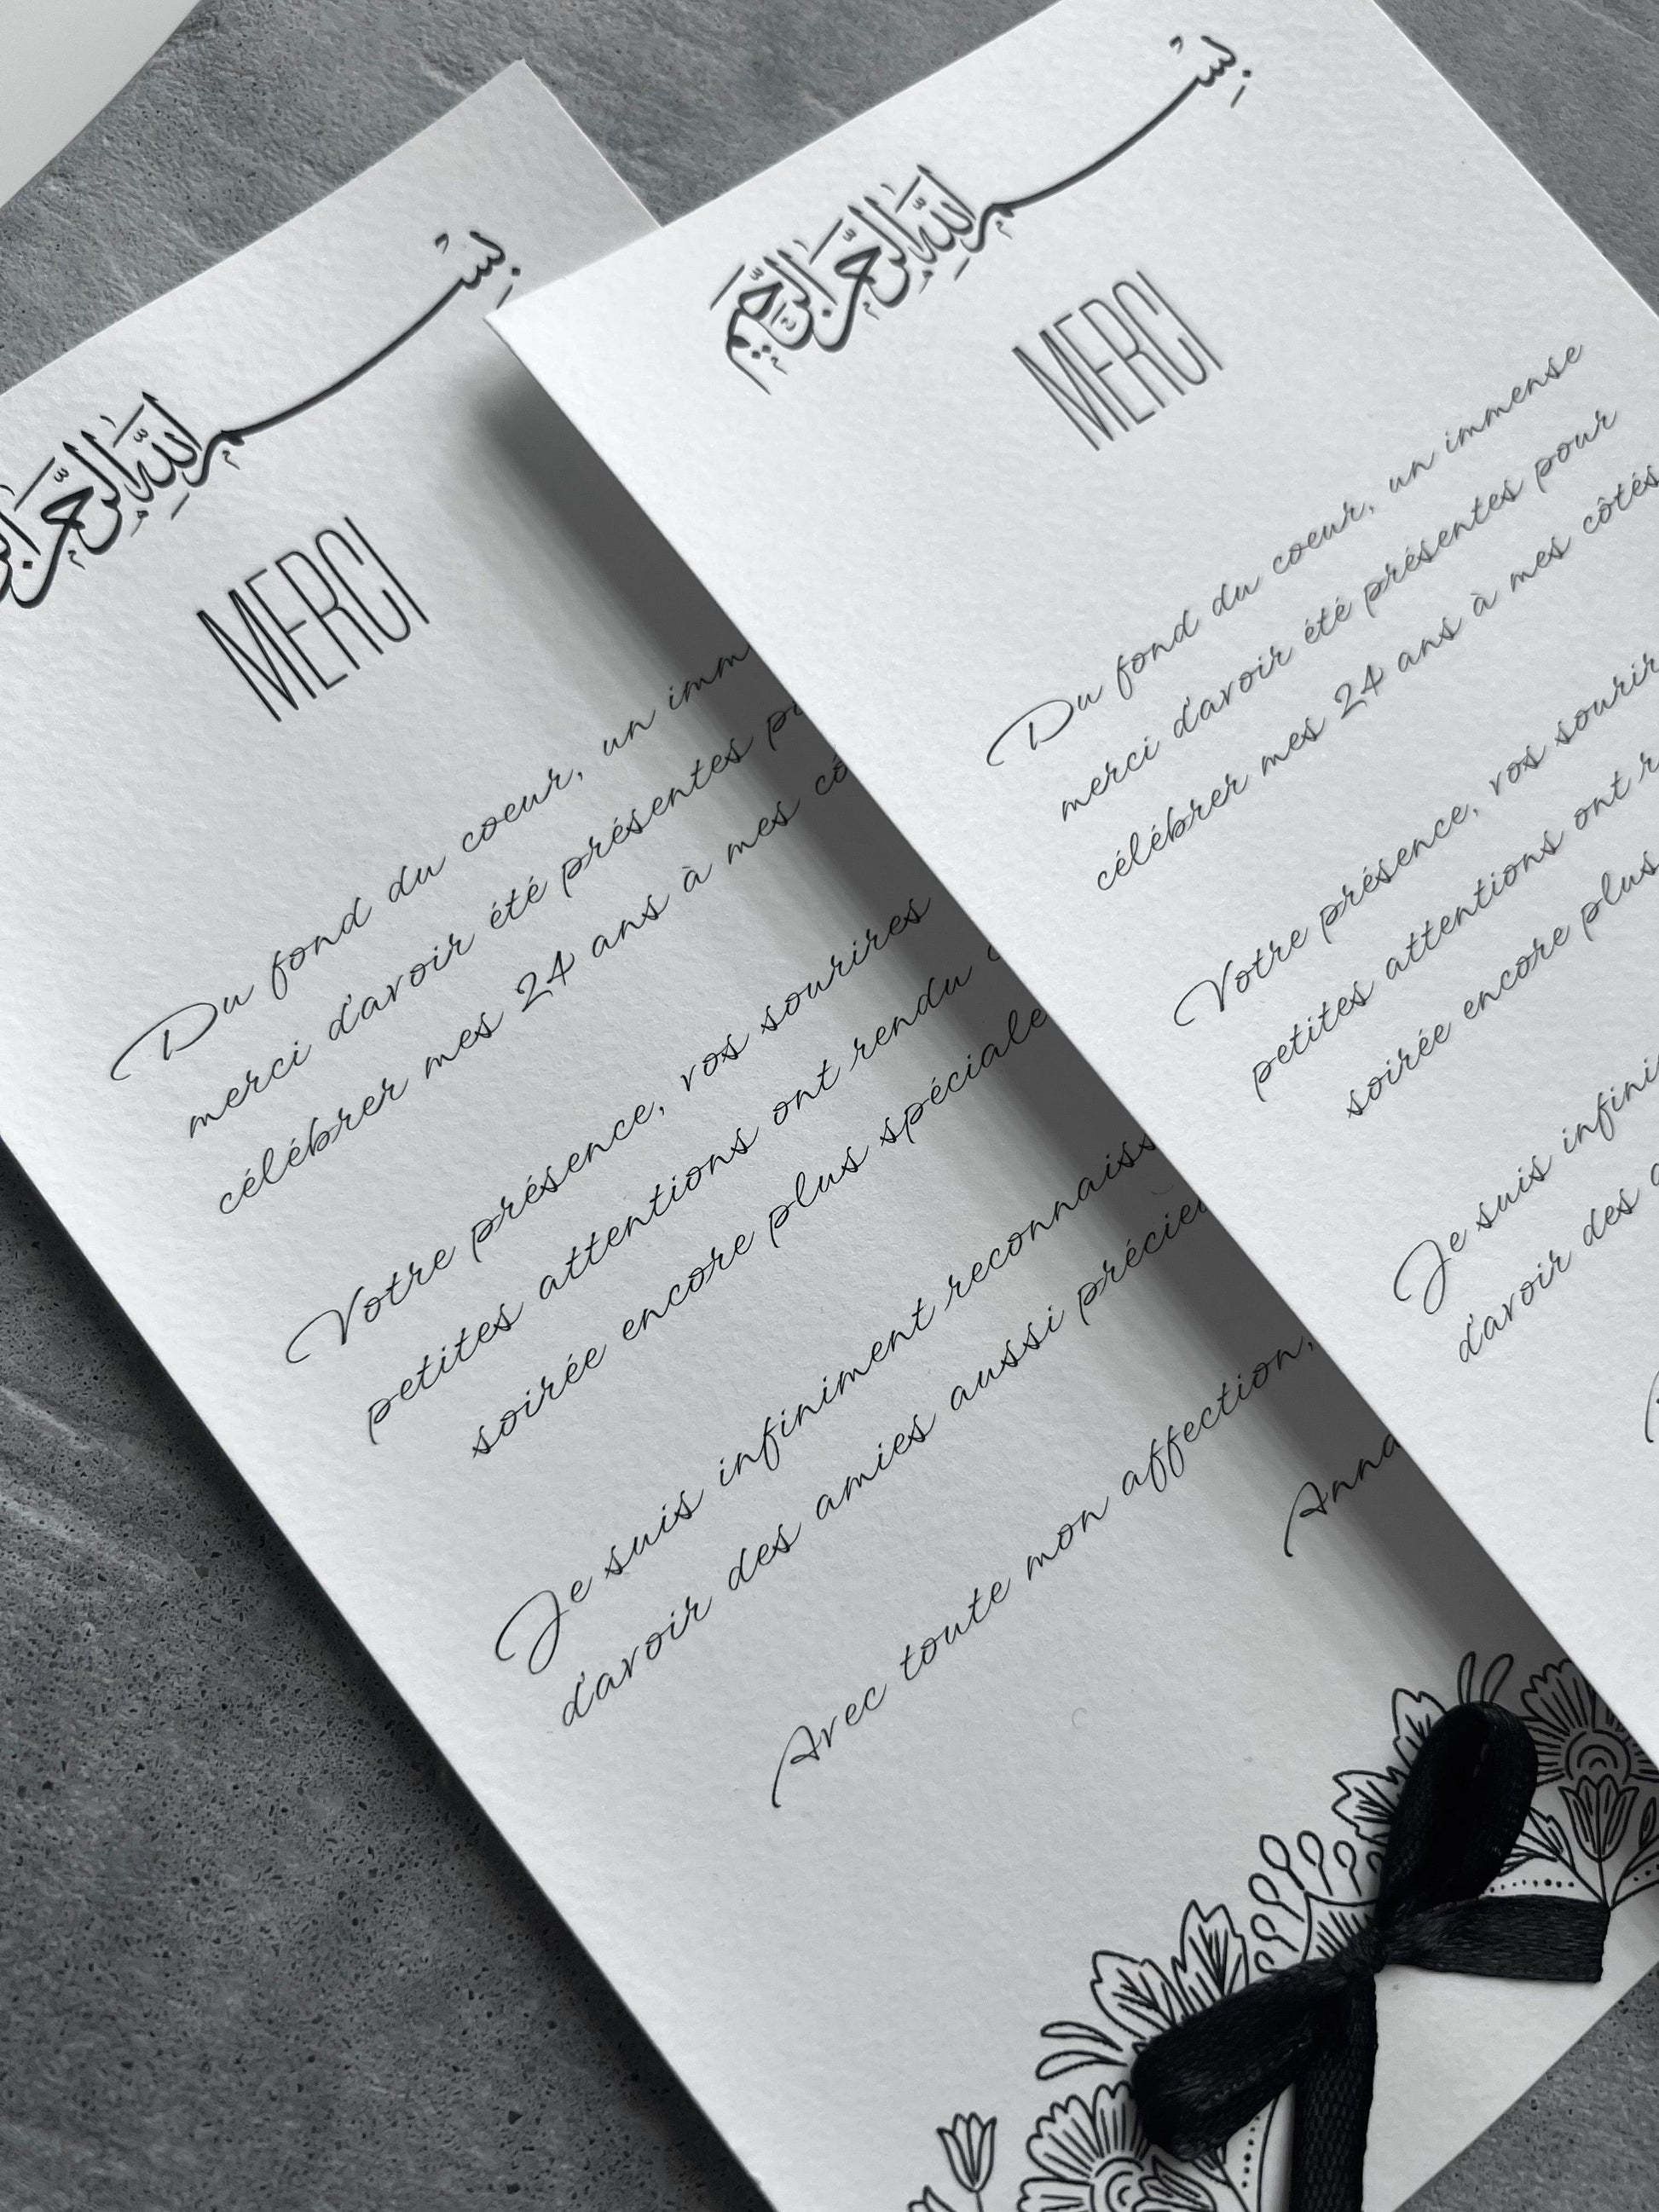 بِسْمِ اللَّهِ الرَّحْمَٰنِ
MERCI
Du fond du coeur, un
merci d'avoir été présentes
célébrer mes 24 ans à mes
Votre présence, vos sourires
petites attentions ont rendu
soirée encore plus spéciale
Je suis infiniment
d'avoir des amies aussi
Avec toute mon affection,
Anna
بِسْمِ اللَّهِ الرَّحْمَٰنِ الرَّحِيمِ
MERCI
Du fond du coeur, un immense
merci d'avoir été présentes pour
célébrer mes 24 ans à mes côtés
Votre présence, vos
petites attentions ont
soirée encore plus
Je suis
d'avoir des